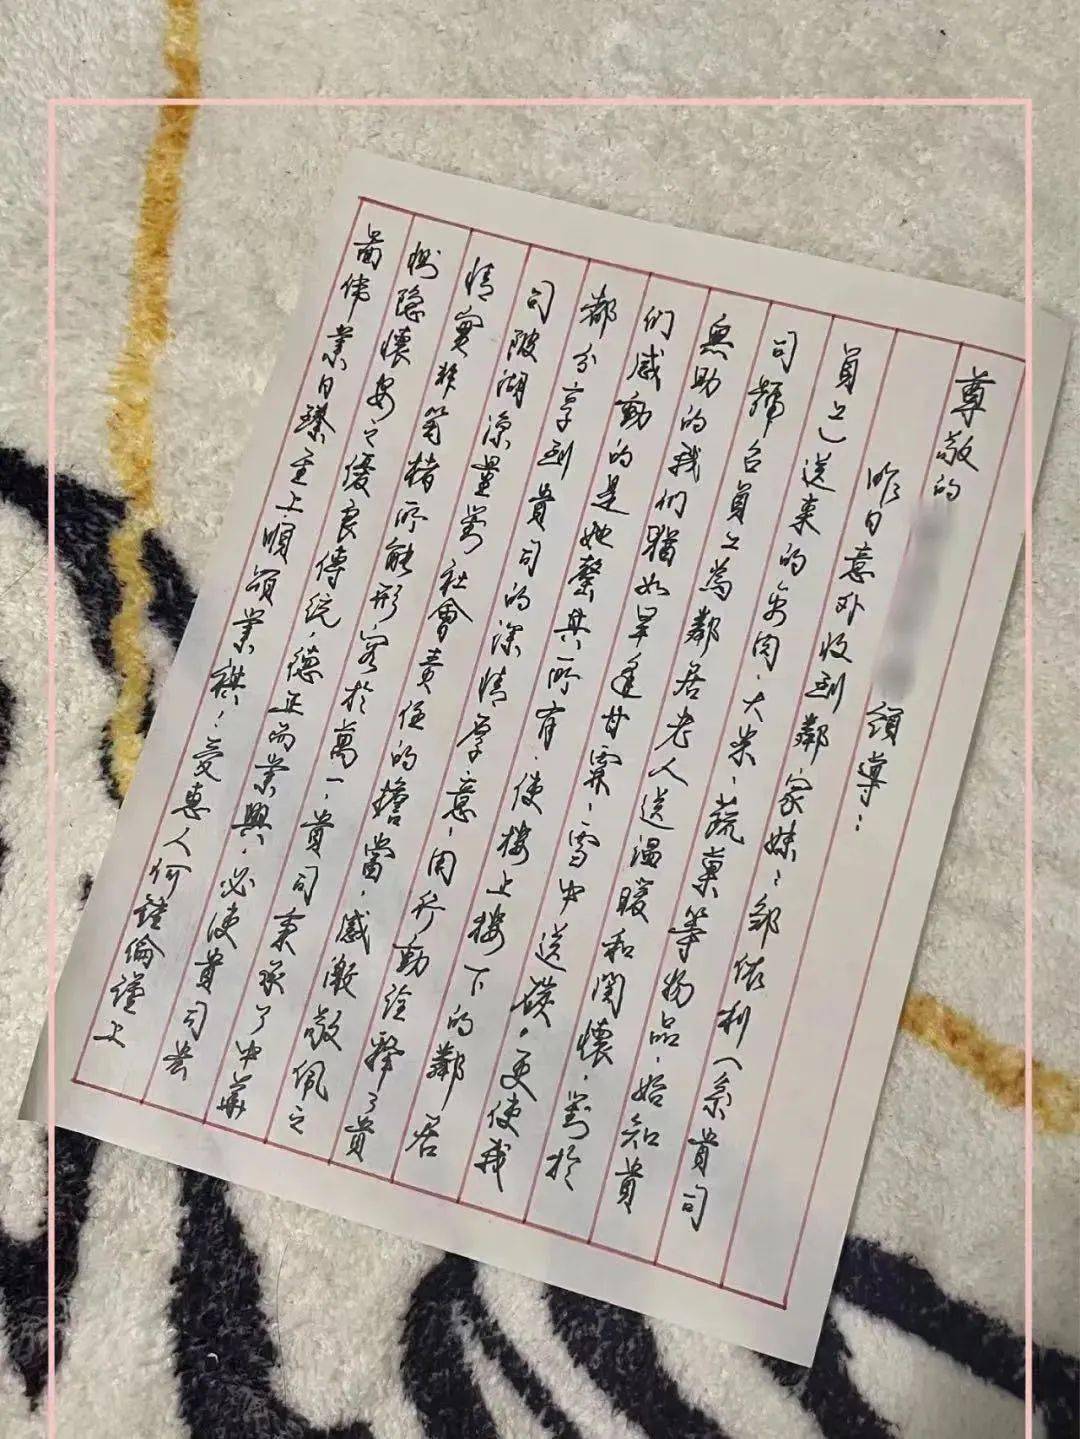 尊敬的 領導：
昨日意外收到鄰家妹：鄒依利（系貴司
員工）送來的魚肉、大米、蔬菓等物品，始知貴
司號召員工為鄰居老人送温暖和関懷，對於
無助的我們猶如旱逢甘霖，雪中送碳。更使我
们感動的是她罄其所有，使樓上樓下的鄰居
都分享到貴司的深情厚意，用行動诠釋了貴
司陂湖凉量對社會責任的擔當，感激敬佩之
情實非筍楮所能形容於萬一，貴司秉承了中華
惻隐懷安之優良傳统，德正而業興，必使貴司芸
啚伟業日臻至上順頌業祺！受惠人何 倫謹上